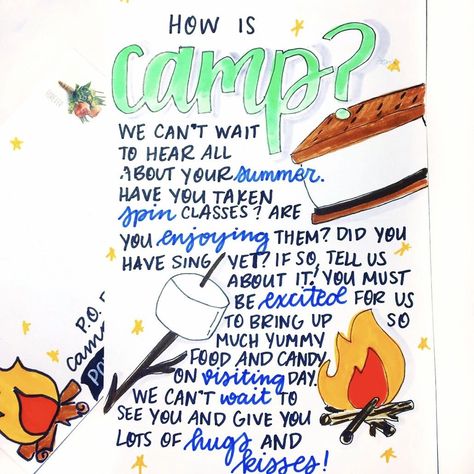 HOW IS
camp?
WE CAN'T WAIT
TO HEAR ALL
ABOUT YOUR summer.
HAVE YOU TAKEN
spin CLASSES? ARE
YOU enjoying THEM? DID YOU
HAVE SING YET? IF SO, TELL US
ABOUT IT! YOU MUST
BE excited FOR US
TO BRING UP SO
MUCH YUMMY
FOOD AND CANDY
ON visiting DAY.
WE CAN'T wait TO
SEE YOU AND GIVE YOU
LOTS OF hugs AND
kisses!
P.O.